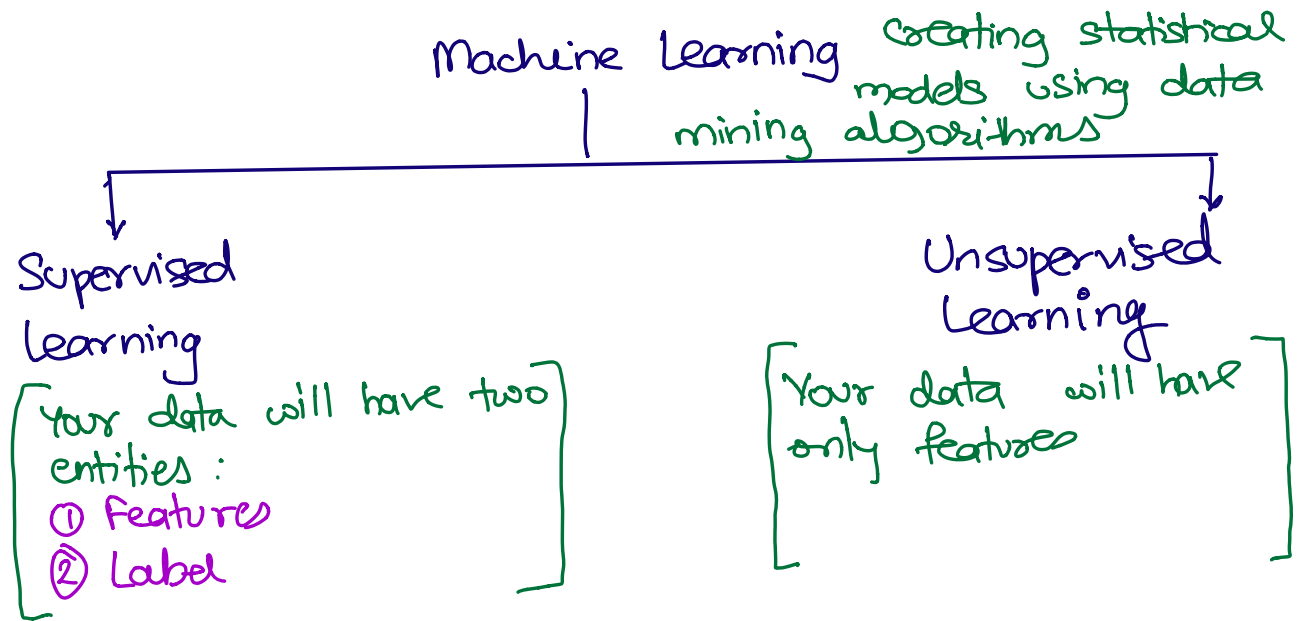 Machine Learning
Creating statistical
models using data
mining algorithms
Supervised
Learning
Your data will have two
entities :
① Features
② Label
Unsupervised
Learning
Your data will have
only features